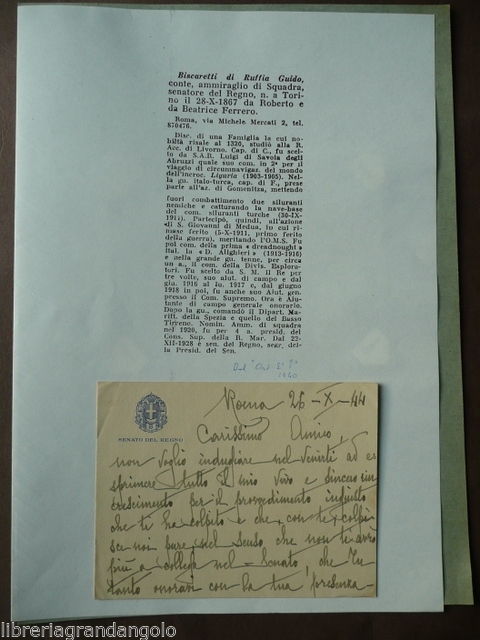 Biscaretti di Ruffia Guido,
conte, ammiraglio di Squadra,
senatore del Regno, n. a Tori-
no il 28-X-1867 da Roberto e
da Beatrice Ferrero.
Roma, via Michele Mercati 2, tel.
870476.
Disc. di una Famiglia la cui no-
biltà risale al 1320, studiò alla R.
Acc. di Livorno. Cap. di C., fu scel-
to da S.A.R. Luigi di Savoia degli
Abruzzi quale suo com. in 2ª per il
viaggio di circumnavigaz. del mondo
dell'incroc. Liguria (1903-1905). Nel-
la gu. italo-turca, cap. di F., prese
parte all'az. di Gomenitza, mettendo
fuori combattimento due siluranti
nemiche e catturando la nave-base
del com. siluranti turche (30-IX-
1911). Partecipò, quindi, all'azione
di S. Giovanni di Medua, in cui ri-
mase ferito (5-X-1911, primo ferito
della guerra), meritando l'O.M.S. Fu
poi com. della prima « dreadnought »
ital. la « D. Alighieri » (1913-1916)
e nella grande gu. tenne, per circa
un a., il com. della Divis. Esplora-
tori. Fu scelto da S. M. il Re per
tre volte, suo aiut. di campo e dal
giu. 1916 al lu. 1917 e, dal giugno
1918 in poi, fu anche suo Aiut. gen.
presso il Com. Supremo. Ora è Aiu-
tante di campo generale onorario.
Dopo la gu., comandò il Dipart. Ma-
ritt. della Spezia e quello del Basso
Tirreno. Nomin. Amm. di squadra
nel 1920, fu per 4 a. presid. del
Cons. Sup. della R. Mar. Dal 22-
XII-1928 è sen. del Regno, segr. del-
la Presid. del Sen.
Dal "Chi è?"
1940
SENATO DEL REGNO
Roma 26-X-44
Carissimo Amico,
non voglio indugiare nel venirti ad e-
sprimere tutto il mio vivo e sincero rin-
crescimento per il provvedimento ingiusto
che ti ha colpito e che con te colpi-
sce noi pure, nel senso che non ti avrò
più a collega nel Senato, che tu
tanto onoravi con la tua presenza
libreriagrandangolo